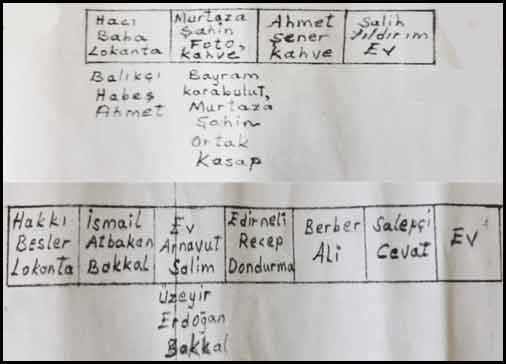 Hacı
Baba
Lokanta
Murtaza
Şahin
Foto,
kahve
Ahmet
Şener
kahve
Salih
Yıldırım
Ev
Balıkçı
Habeş
Ahmet
Bayram
karabulut,
Murtaza
Şahin
Ortak
Kasap
Hakkı
Besler
Lokanta
İsmail
Atbakan
Bakkal
Ev
Arnavut
Salim
Edirneli
Recep
Dondurma
Berber
Ali
Salepçi
Cavat
Ev
Üzeyir
Erdoğan
Bakkal